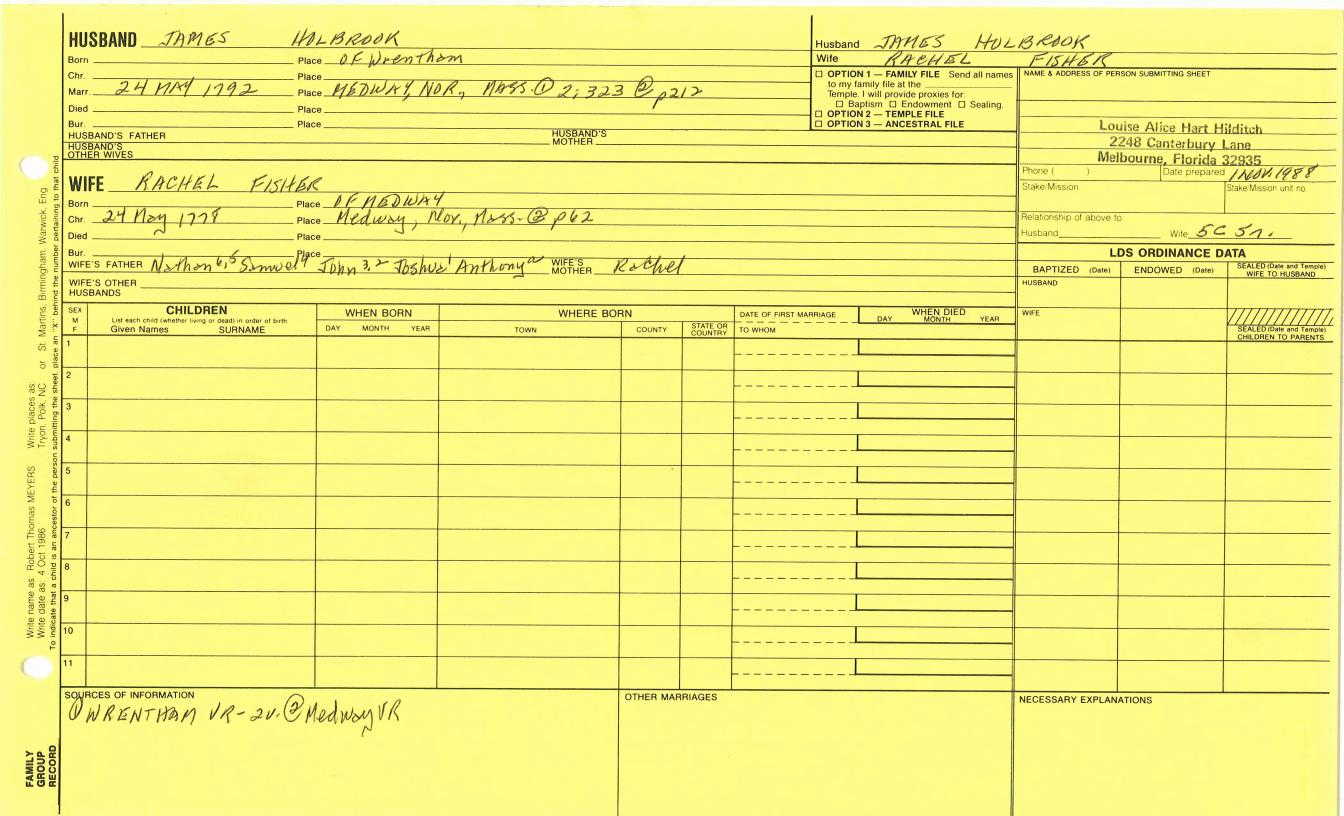 HUSBAND JAMES HOLBROOK
Born Place OF Wrentham
Chr. Place
Marr. 24 MAY 1792 Place MEDWAY, NOR., MASS. ① 2:323 ② p212
Died Place
Bur. Place
HUSBAND'S FATHER HUSBAND'S MOTHER
HUSBAND'S OTHER WIVES
Husband JAMES HOLBROOK
Wife RACHEL FISHER
☐ OPTION 1 — FAMILY FILE Send all names
to my family file at the
Temple. I will provide proxies for:
☐ Baptism ☐ Endowment ☐ Sealing.
☐ OPTION 2 — TEMPLE FILE
☐ OPTION 3 — ANCESTRAL FILE
NAME & ADDRESS OF PERSON SUBMITTING SHEET
Louise Alice Hart Hilditch
2248 Canterbury Lane
Melbourne, Florida 32935
Phone ( ) Date prepared 1 NOV. 1988
Stake/Mission Stake/Mission unit no.
Relationship of above to:
Husband Wife 5C 5r.
WIFE RACHEL FISHER
Born Place OF MEDWAY
Chr. 24 May 1778 Place Medway, Nor., Mass. ② p62
Died Place
Bur. Place
WIFE'S FATHER Nathan 6,5 Samuel 4 John 3,2 Joshua 1 Anthony a WIFE'S MOTHER Rachel
WIFE'S OTHER HUSBANDS
LDS ORDINANCE DATA
BAPTIZED (Date) ENDOWED (Date) SEALED (Date and Temple) WIFE TO HUSBAND
HUSBAND
WIFE
SEALED (Date and Temple) CHILDREN TO PARENTS
SEX M F
CHILDREN
List each child (whether living or dead) in order of birth
Given Names SURNAME
WHEN BORN
DAY MONTH YEAR
WHERE BORN
TOWN COUNTY STATE OR COUNTRY
DATE OF FIRST MARRIAGE
TO WHOM
WHEN DIED
DAY MONTH YEAR
1
2
3
4
5
6
7
8
9
10
11
SOURCES OF INFORMATION
① WRENTHAM VR-2v. ② Medway VR
OTHER MARRIAGES
NECESSARY EXPLANATIONS
Write name as Robert Thomas MEYERS Write places as Tryon, Polk, NC or St. Martins, Birmingham, Warwick, Eng
Write date as 4 Oct 1986
To indicate that a child is an ancestor of the person submitting the sheet, place an "X" behind the number pertaining to that child
FAMILY GROUP RECORD